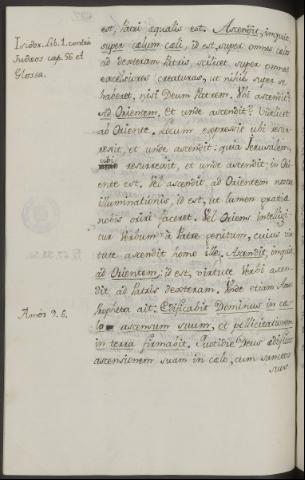 Isidor. Lib. 1. contra
Judæos cap. 56 et
Glossa.
est, Patri æqualis est. Ascendit, inquit,
super cælum cæli, id est, super omnes cælos
ad dexteram Patris, scilicet, super omnes
excelsiores creaturas, ut nihil super se
haberet, nisi Deum Patrem. Ubi ascendit?
Ad Orientem. Et unde ascendit? Utique
ab Oriente. Locum expressit ubi resur-
rexit, et unde ascendit: quia Jerusalem,
ubi resurrexit, et unde ascendit; in Ori-
ente est. Vel ascendit ad Orientem nostræ
illuminationis, id est, ut lumen gratiæ
nobis oriri faceret. Vel Oriens intelligi-
tur Verbum a Patre genitum, cuius vir-
tute ascendit homo ille. Ascendit, inquit,
ad Orientem; id est, virtute Verbi ascen-
dit ad Patris dexteram. Unde etiam Amos
Propheta ait: Edificabit Dominus in cæ-
lo ascensum suum, et pollicitationem
in terra firmabit. Quotidie Deus ædificat
ascensionem suam in cælo, cum sanctos
suos
Amos 9. 6.